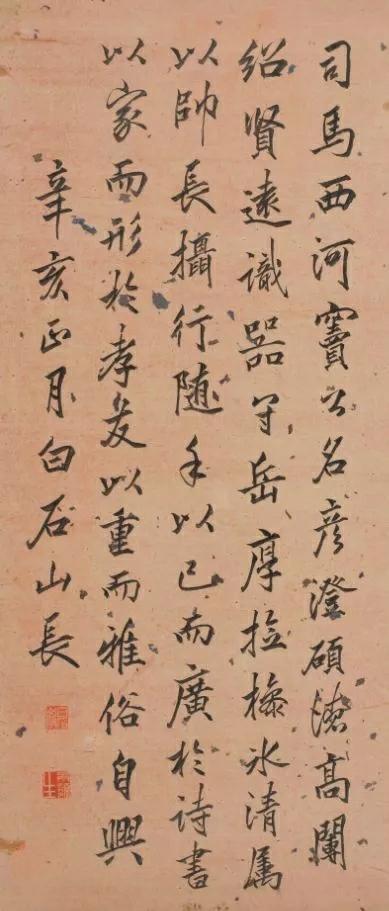 司馬西河竇公名彦澄碩德高闌
紹賢遠識器宇岳厚捡橡冰清属
以帥長攝行随手以己而廣於诗書
以家而形於孝友以重而雅俗自興
辛亥正月白石山長